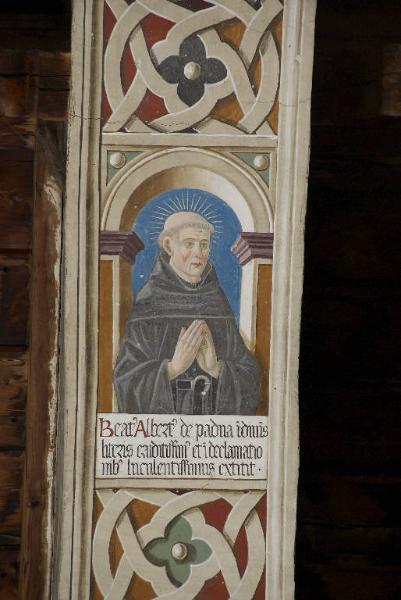 Beatꝰ Albertꝰ de padua ī diuīs
litteris eruditissimꝰ et ī declamatio
nibꝰ luculentissimus extitit .